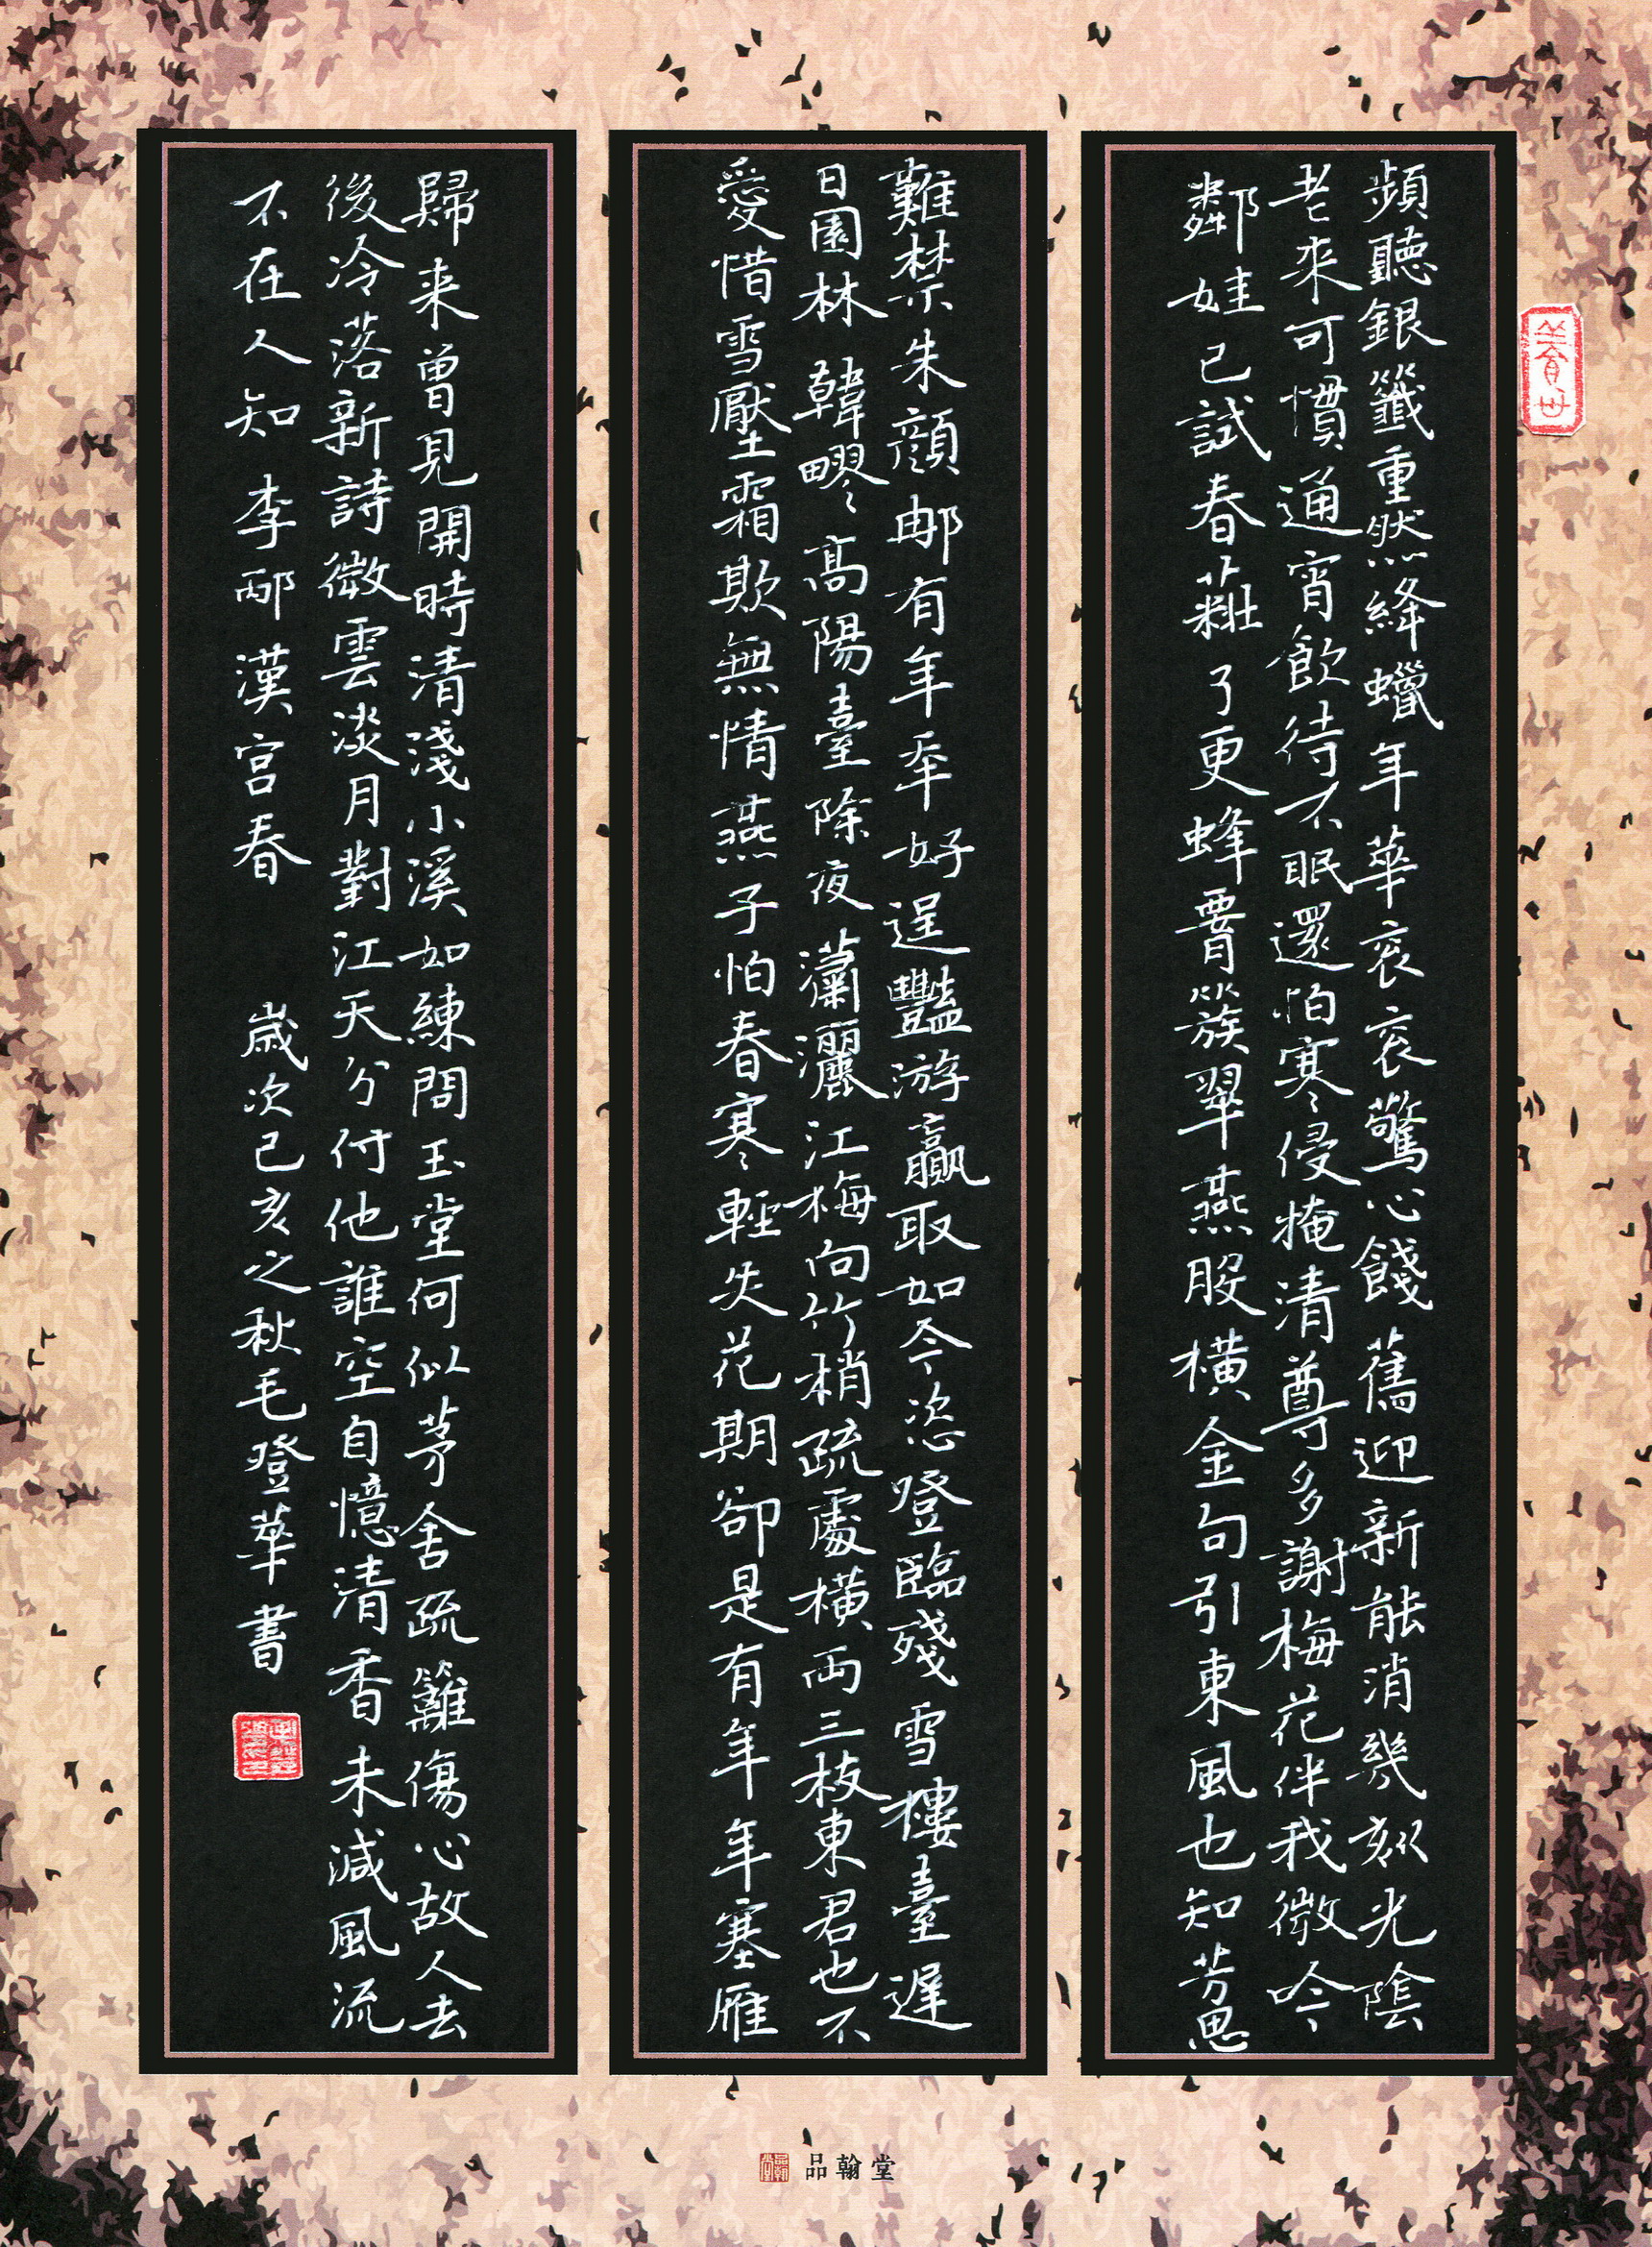 頻聽銀籤重然絳蠟年華衮衮驚心餞舊迎新能消幾刻光陰
老來可慣通宵飲待不眠還怕寒侵掩清尊多謝梅花伴我微吟
鄰娃已試春粧了更蜂腰簇翠燕股橫金句引東風也知芳思
難禁朱顏那有年年好逞豔游贏取如今恣登臨殘雪樓臺遲
日園林 韓疁高陽臺除夜 瀟灑江梅向竹梢疏處橫兩三枝東君也不
愛惜雪壓霜欺無情燕子怕春寒輕失花期卻是有年年塞雁
歸來曾見開時清淺小溪如練問玉堂何似茅舍疏籬傷心故人去
後冷落新詩微雲淡月對江天分付他誰空自憶清香未減風流
不在人知 李邴漢宮春 歲次己亥之秋毛登華書
品翰堂